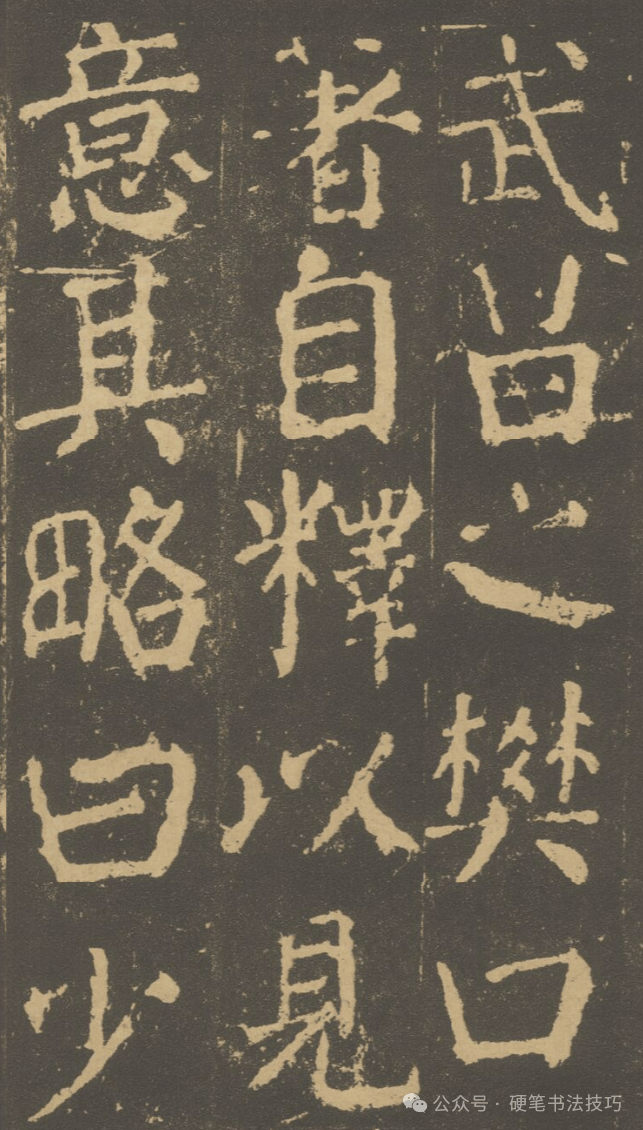 武昌之樊口
著自釋以見
意其略曰少
公众号 · 硬笔书法技巧